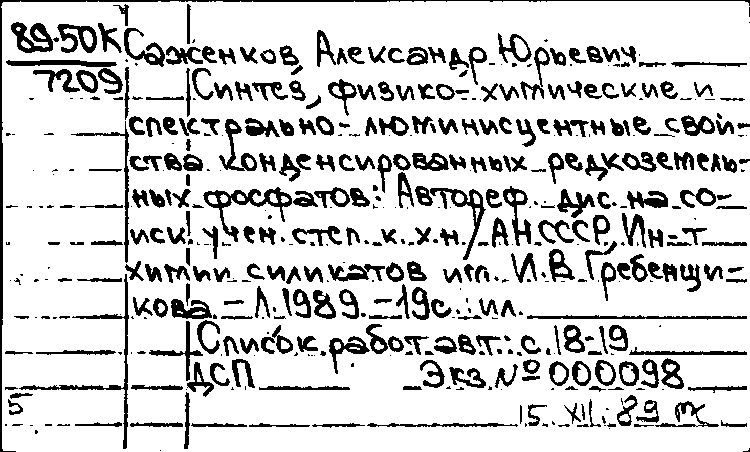 89-50К Саженков, Александр Юрьевич
7209 Синтез, физико-химические и
спектрально-люминисцентные свой-
ства конденсированных редкоземель-
ных фосфатов: Автореф. дис. на со-
иск. учен. степ. к. х. н. / АН СССР, Ин-т
химии силикатов им. И.В. Гребенщи-
кова. - Л. 1989. - 19с.: ил.
Список работ авт.: с. 18-19
ДСП Экз № 000098
5 15. XII. 89